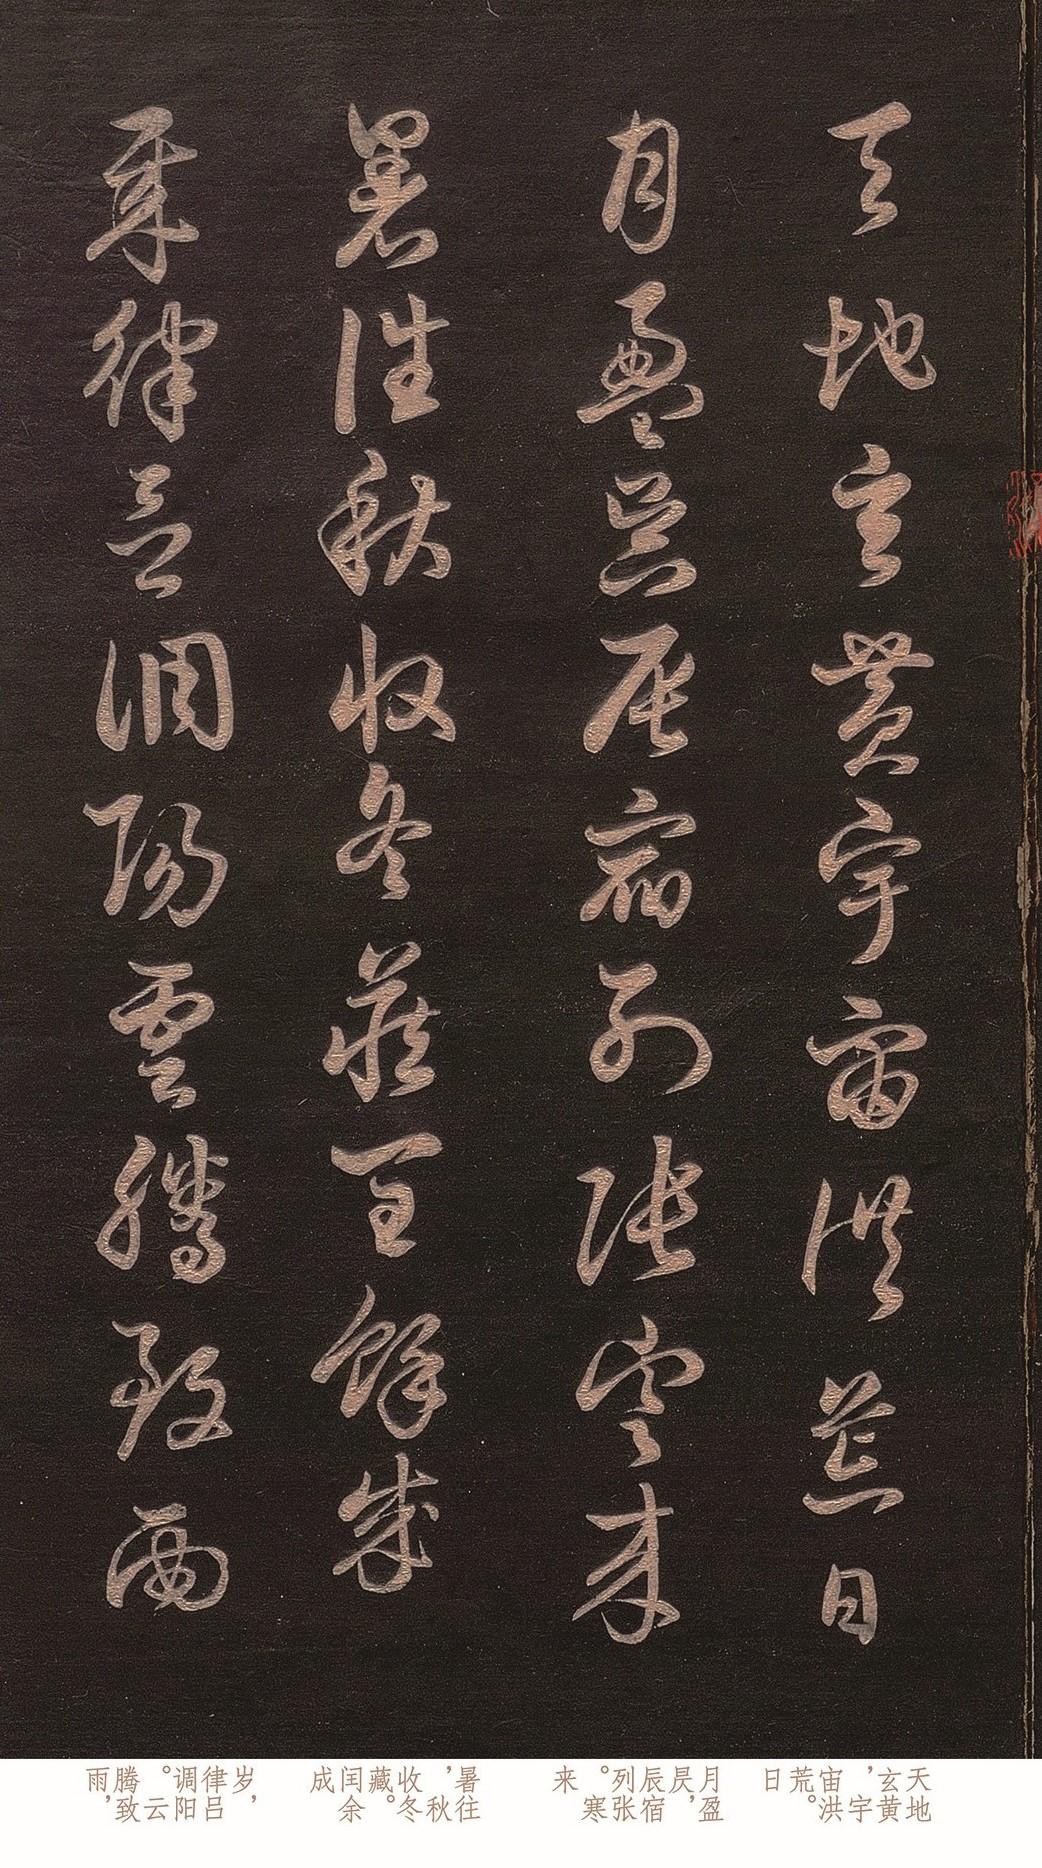 天地玄黃宇宙洪荒日
月盈昃辰宿列張寒来
暑往秋收冬藏閏餘成
歲律呂調陽雲騰致雨
天地玄黄，宇宙洪荒。日
月盈昃，辰宿列张。寒来
暑往，秋收冬藏。闰余成
岁，律吕调阳。云腾致雨，